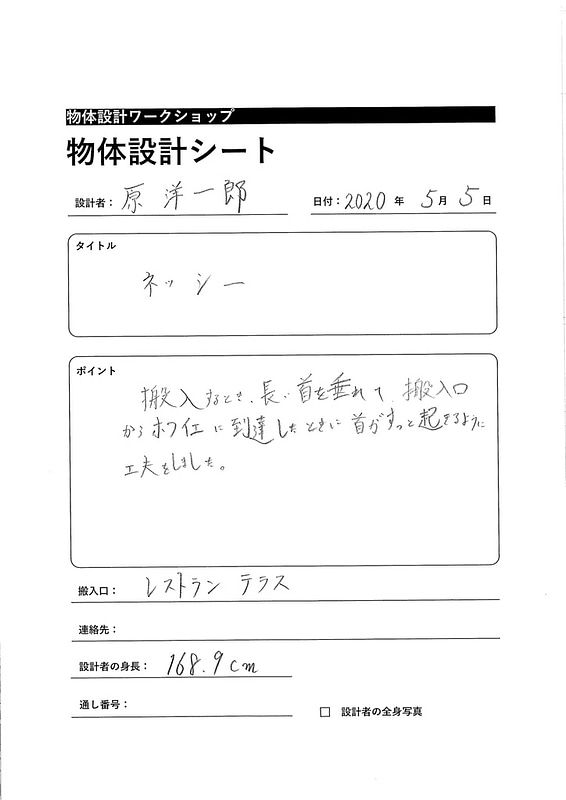 物体設計ワークショップ
物体設計シート
設計者： 原 洋一郎 日付：2020 年 5 月 5 日
タイトル
ネッシー
ポイント
搬入するとき、長い首を垂れて 搬入口
からホワイエに到達したときに首がすっと起きるように
工夫をしました。
搬入口： レストラン テラス
連絡先：
設計者の身長： 168.9cm
通し番号：
□ 設計者の全身写真